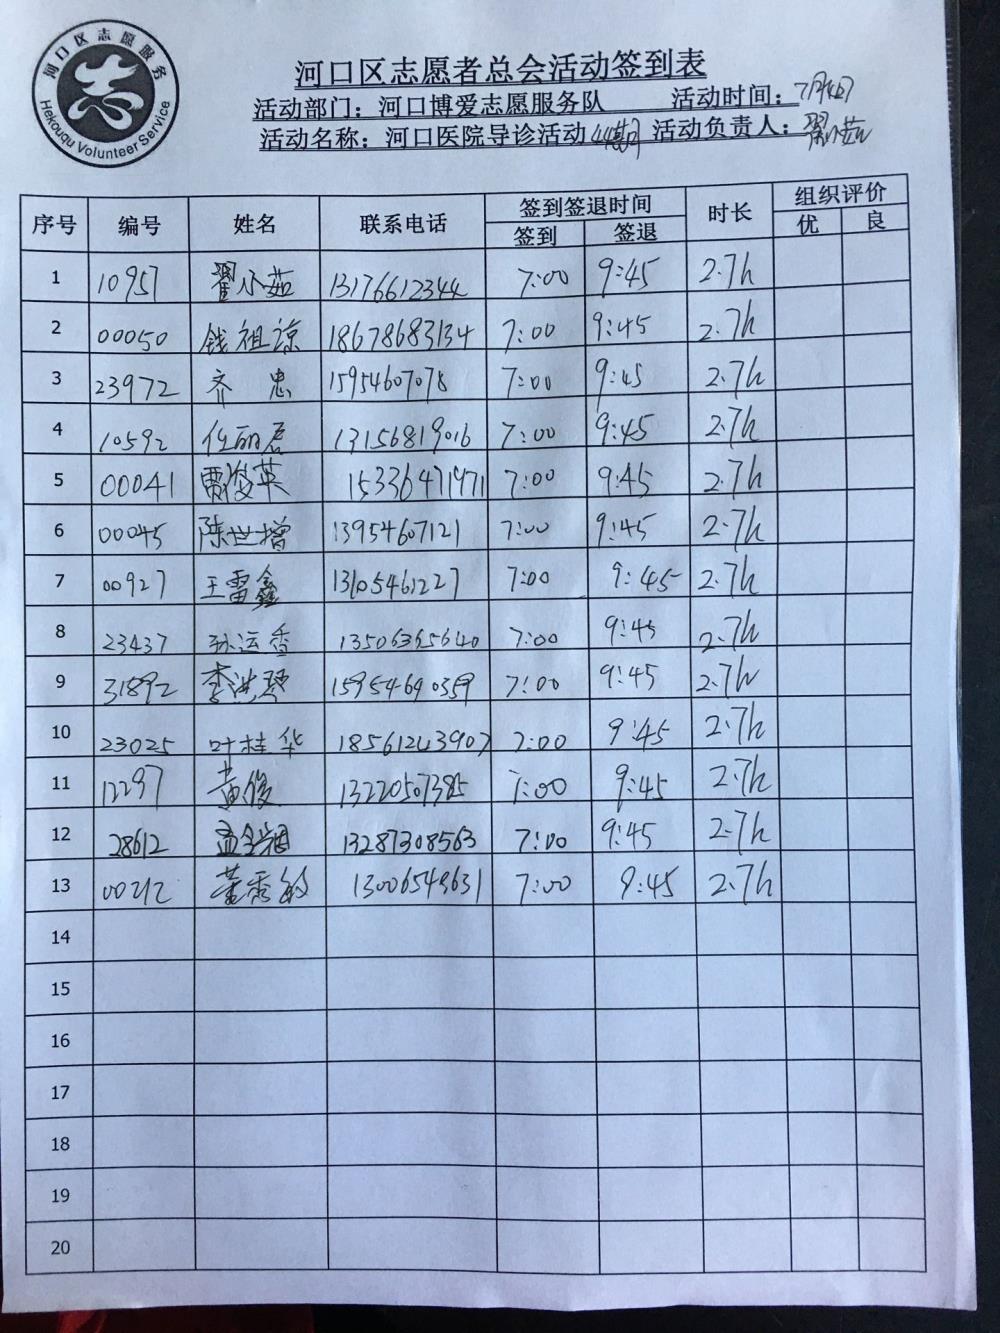 河口区志愿服务
Hekouqu Volunteer Service
河口区志愿者总会活动签到表
活动部门：河口博爱志愿服务队 活动时间：7月4日
活动名称：河口医院导诊活动44期 活动负责人：翟小茹
序号 编号 姓名 联系电话 签到签退时间 时长 组织评价
签到 签退 优 良
1 10957 翟小茹 13176612344 7:00 9:45 2.7h
2 00050 钱祖谅 18678683134 7:00 9:45 2.7h
3 23972 齐忠 15954607078 7:00 9:45 2.7h
4 10592 任丽君 13156819016 7:00 9:45 2.7h
5 00041 贾俊英 15336471971 7:00 9:45 2.7h
6 00045 陈世增 13954607121 7:00 9:45 2.7h
7 00927 王雷鑫 13105461227 7:00 9:45 2.7h
8 23437 孙运香 7:00 9:45 2.7h
9 31892 李洪琴 15954690359 7:00 9:45 2.7h
10 23025 叶桂华 18561243907 7:00 9:45 2.7h
11 12297 黄俊 13220507385 7:00 9:45 2.7h
12 28612 13287308563 7:00 9:45 2.7h
13 00212 董秀敏 7:00 9:45 2.7h
14
15
16
17
18
19
20